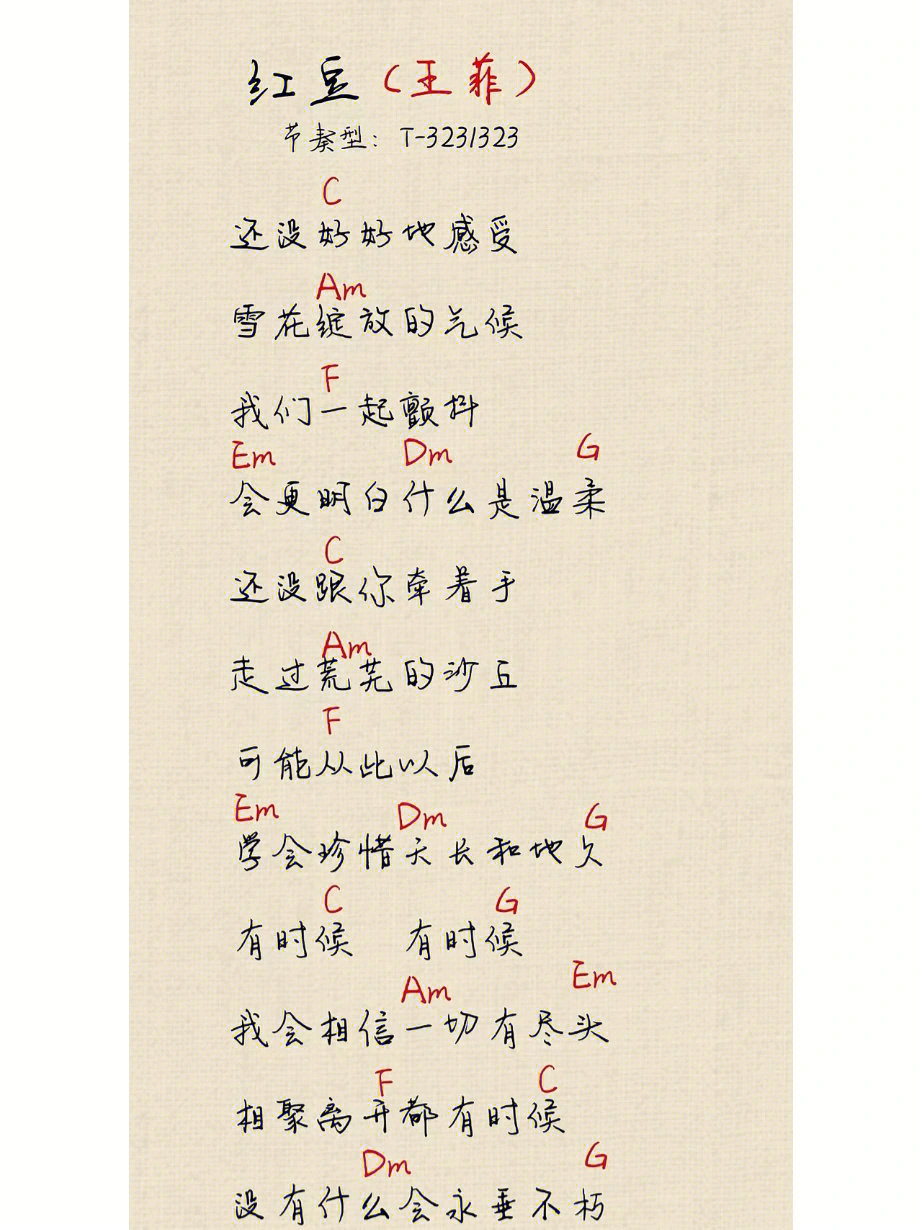 红豆（王菲）
节奏型：T-3231323
C
还没好好地感受
Am
雪花绽放的气候
F
我们一起颤抖
Em Dm G
会更明白什么是温柔
C
还没跟你牵着手
Am
走过荒芜的沙丘
F
可能从此以后
Em Dm G
学会珍惜天长和地久
C G
有时候 有时候
Am Em
我会相信一切有尽头
F C
相聚离开都有时候
Dm G
没有什么会永垂不朽